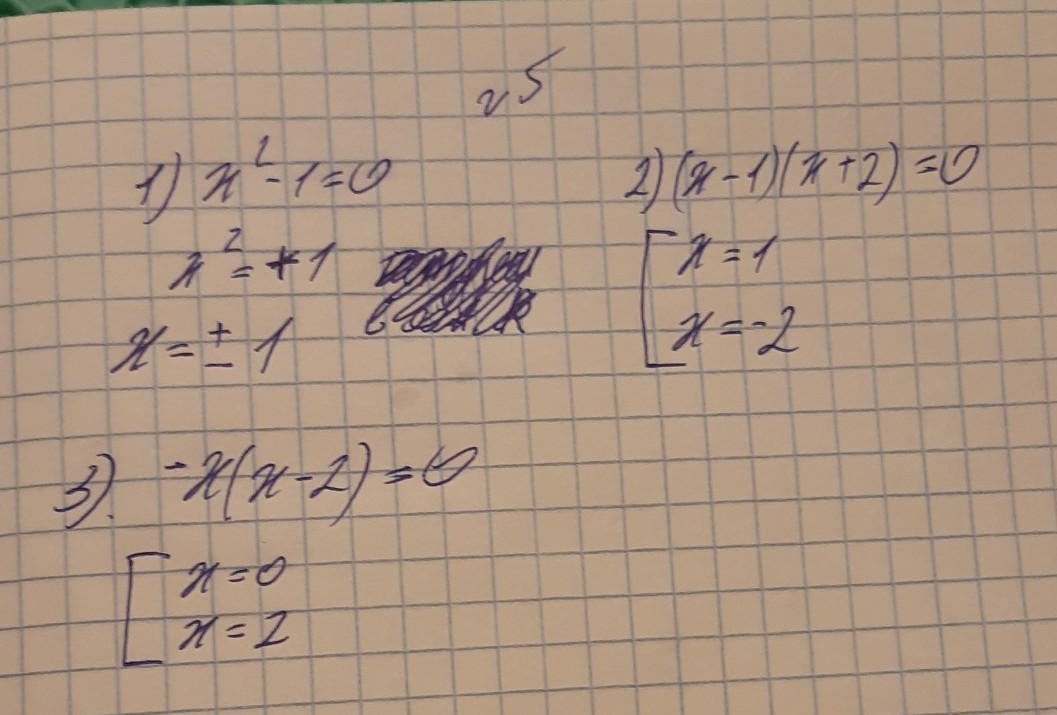 √5
1) x² - 1 = 0
x² = +1
x = ± 1
2) (x - 1)(x + 2) = 0
[ x = 1
x = -2
3). -x(x - 2) = 0
[ x = 0
x = 2